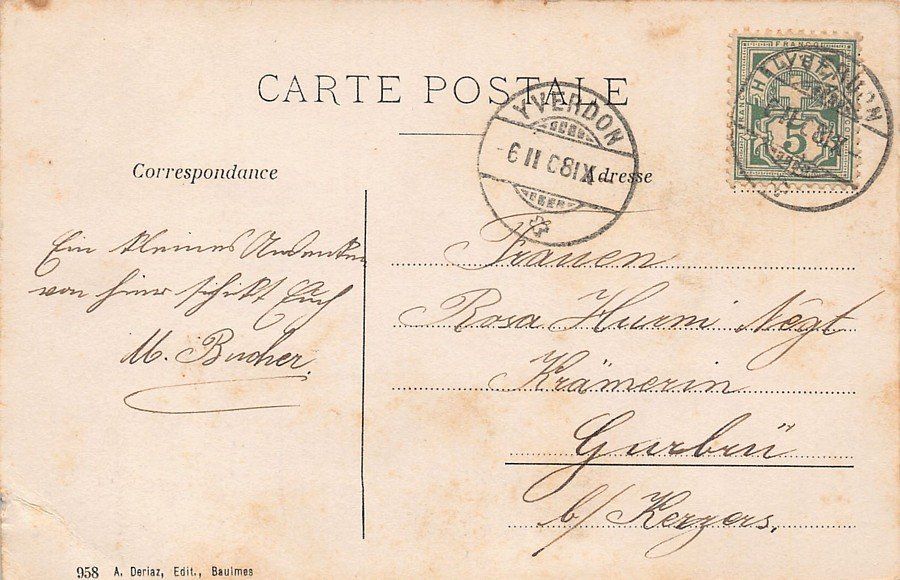 CARTE POSTALE
FRANCO
HELVETIA
5
YVERDON
-6 II 08 IX-
YVERDON
Correspondance
Adresse
Ein kleines Andenken
von hier schikt Euch
M. Bucher.
Frauen
Rosa Hurni Nägt
Krämerin
Gurbrü
b/ Kerzers.
958 A. Deriaz, Edit., Baulmes